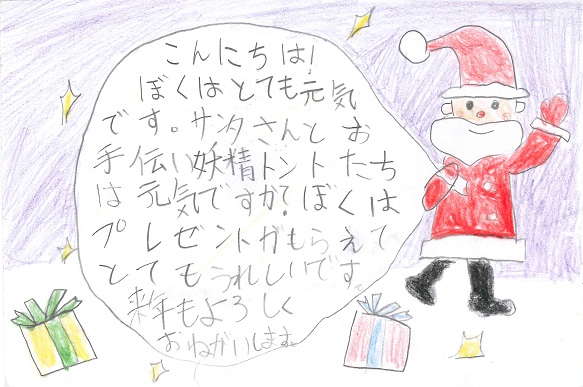 こんにちは!
ぼくはとても元気
です。サンタさんとお
手伝い妖精トントたち
は元気ですか?ぼくは
プレゼントがもらえて
とてもうれしいです。
来年もよろしく
おねがいします。